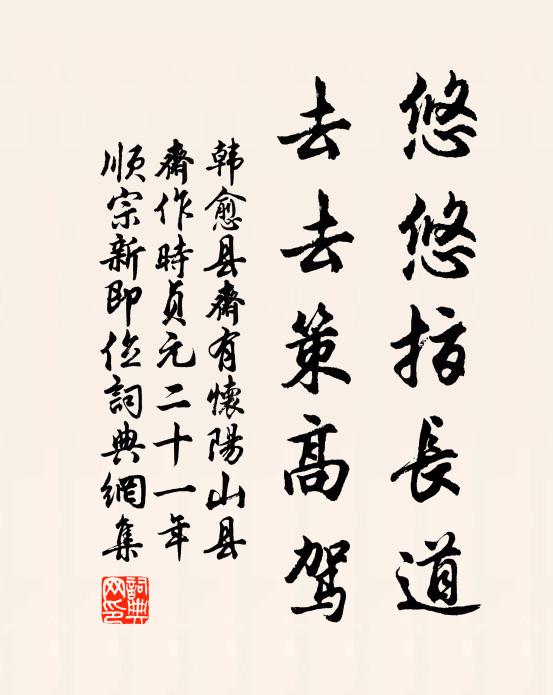 悠悠指長道
去去策高駕
韩愈县齋有懷陽山县
齋作時貞元二十一年
順宗新即位詞典網集
詞典
网印